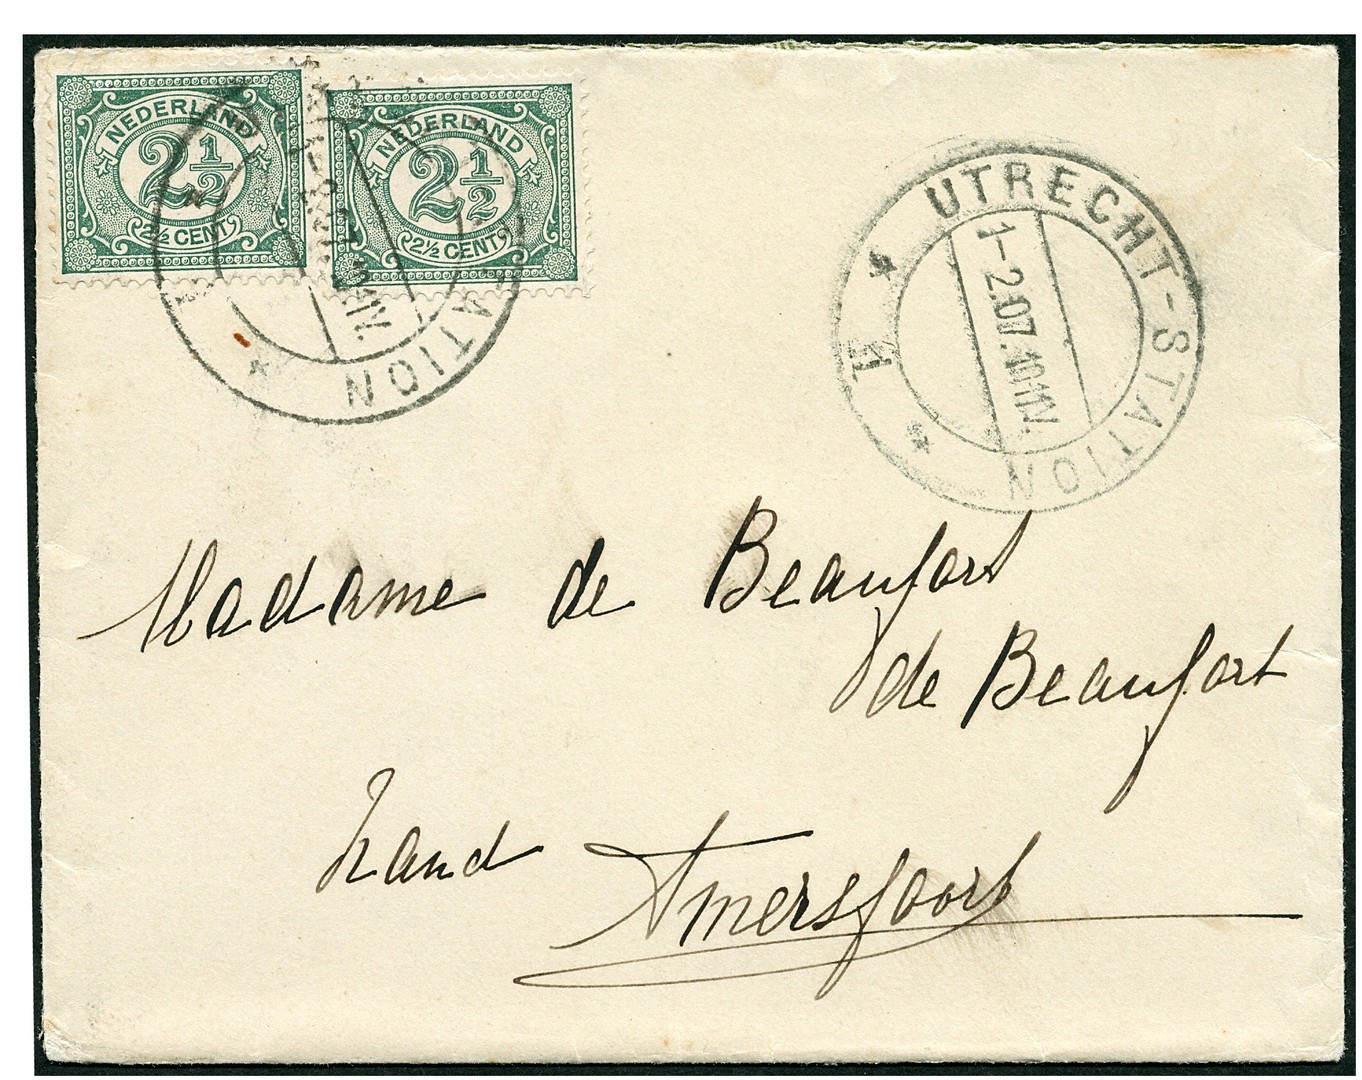 NEDERLAND
2½
2½ CENT
NEDERLAND
2½
2½ CENT
STATION
UTRECHT-STATION
1-2.07.10-11V.
1
Madame de Beaufort
de Beaufort
Zand Amersfoort